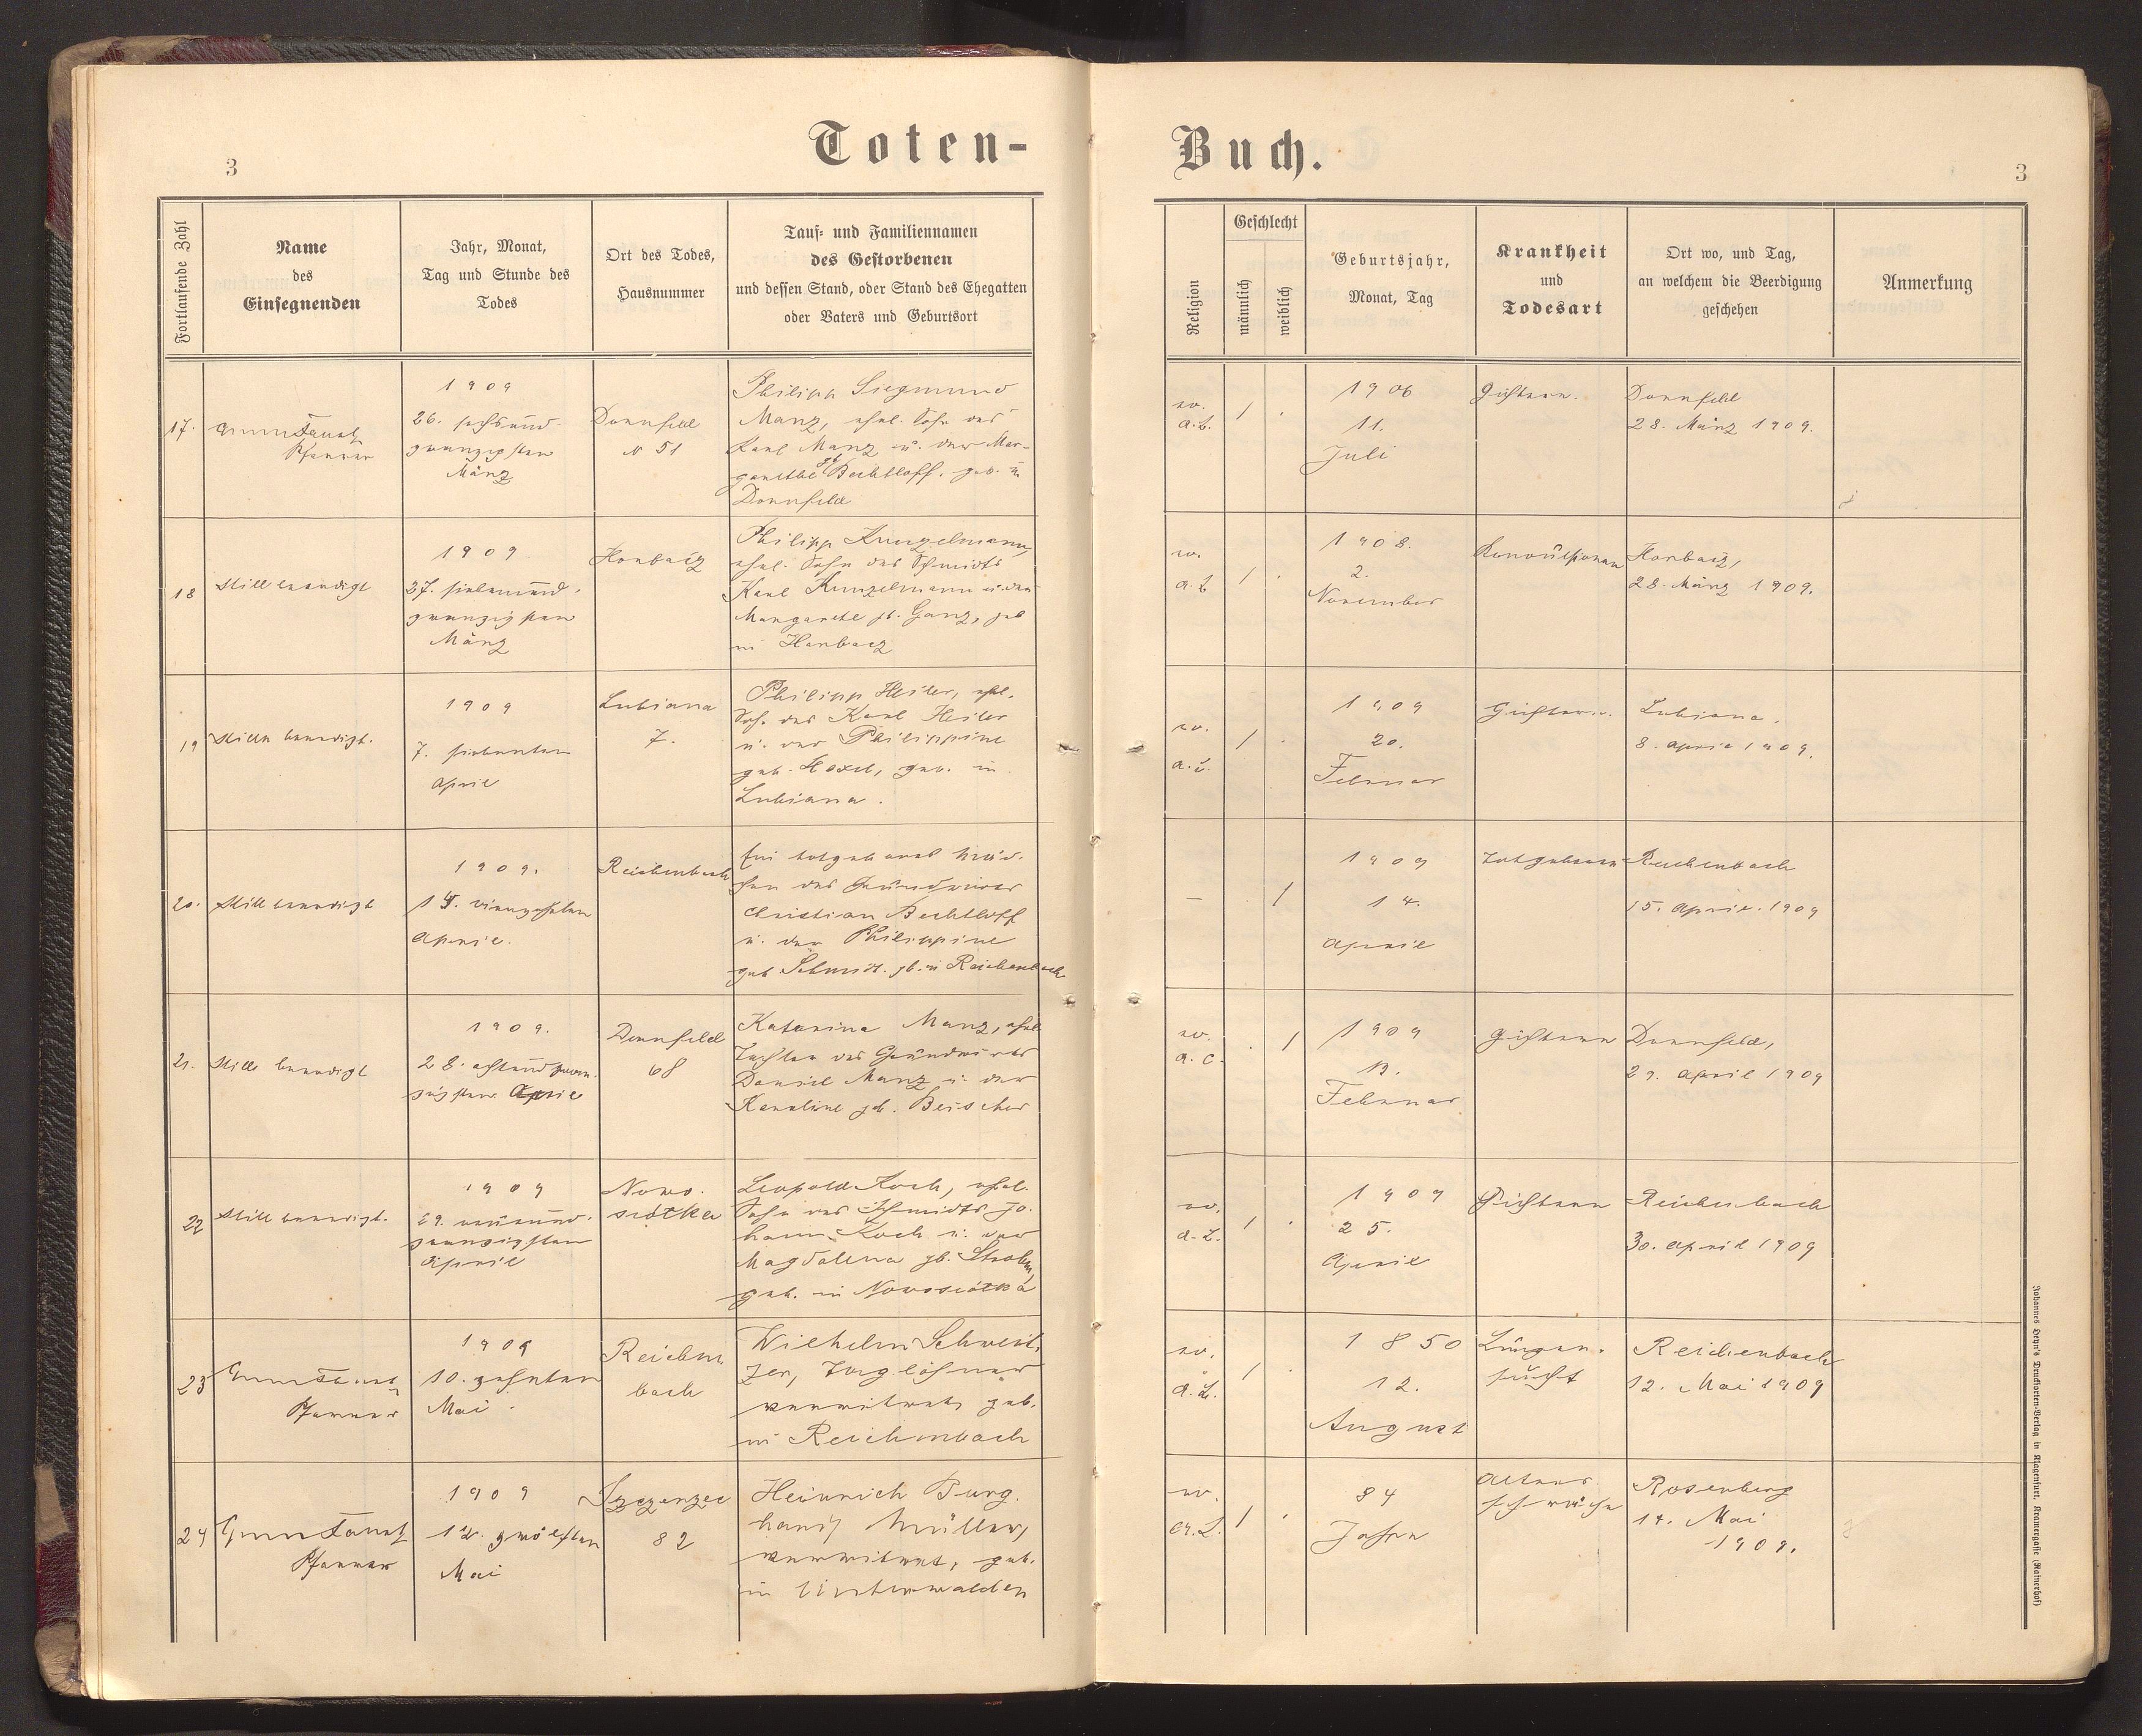 Toten-
Buch.
3
3
Fortlaufende Zahl
Name
des
Einsegnenden
Jahr, Monat,
Tag und Stunde des
Todes
Ort des Todes,
Hausnummer
Tauf- und Familiennamen
des Gestorbenen
und dessen Stand, oder Stand des Ehegatten
oder Vaters und Geburtsort
Religion
Geschlecht
männlich
weiblich
Geburtsjahr,
Monat, Tag
Krankheit
und
Todesart
Ort wo, und Tag,
an welchem die Beerdigung
geschehen
Anmerkung
17.
Pfarrer
1909
26. sechsund-
zwanzigsten
März
Dornfeld
N 51
Philipp Siegmund
Manz, ehel. Sohn des
Karl Manz u. der Mar-
garethe gb Bechtloff. geb. in
Dornfeld
ev.
A.C.
1
1906
11.
Juli
Gichtern.
Dornfeld
28. März 1909.
18
still beerdigt
1909
27. siebenund-
zwanzigsten
März
Horbacz
Philipp Kunzelmann,
ehel. Sohn des Schmidts
Karl Kunzelmann u. der
Margarethe gb. Ganz, geb
in Horbacz
ev.
A.C.
1
1908.
2.
November
Konvulsionen
Horbacz,
28. März 1909.
19
stille beerdigt.
1909
7. siebenten
April
Lubiana
7.
Philipp Heiler, ehel.
Sohn des Karl Heiler
u. der Philippine
geb. Hexel, geb. in
Lubiana.
ev.
A.C.
1
1909
20.
Februar
Gichtern.
Lubiana.
8. April 1909.
20.
still beerdigt
1909.
14. vierzehnten
April.
Reichenbach
Ein totgeborenes Mäd-
chen des Grundwirts
Christian Bechtloff
u. der Philippine
geb Schmidt. gb. in Reichenbach
—
1
1909
14.
April
Totgeboren
Reichenbach
15. April. 1909
21.
still beerdigt
1909.
28. achtundzwan-
zigsten April
Dornfeld
68
Katarina Manz, ehel.
Tochter des Grundwirts
Daniel Manz u. der
Karoline gb. Beischer
ev.
A.C.
1
1909
13.
Februar
Gichtern
Dornfeld,
29. April 1909
22
still beerdigt.
1909
29. neunund-
zwanzigsten
April
Nowo-
siółka
Leopold Koch, ehel.
Sohn des Schmidts Jo-
hann Koch u. der
Magdalena gb. Strohm,
geb. in Nowosiółka
ev.
A.C.
1
1909
25.
April
Gichtern
Reichenbach
30. April 1909
23
Pfarrer
1909
10. zehnten
Mai.
Reichen-
bach
Wilhelm Schweit-
zer, Taglöhner
verwitwet, geb.
in Reichenbach
ev.
A.C.
1
1850
12.
August
Lungen-
sucht
Reichenbach
12. Mai 1909
24
Pfarrer
1909
12. zwölften
Mai
Szczerzec
82
Heinrich Burg-
hardt Müller,
verwitwet, geb.
in Unterwalden
ev.
A.C.
1
84
Jahre
Alters-
schwäche
Rosenberg
14. Mai
1909.
Johannes Heyn's Drucksorten-Verlag in Klagenfurt, Kramergasse (Rainerhof)